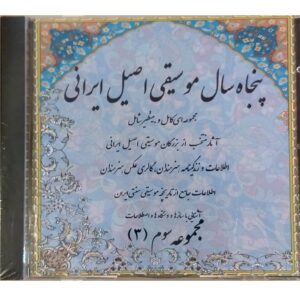 پنجاه سال موسیقی اصیل ایرانی
مجموعه‌ای کامل و بینظیر شامل
آثار منتخب از بزرگان موسیقی اصیل ایرانی
اطلاعات و زندگینامه هنرمندان، گالری عکس هنرمندان
اطلاعات جامع از تاریخچه موسیقی سنتی ایران
آشنایی با سازها و دستگاهها و اصطلاحات
مجموعه سوم (۳)